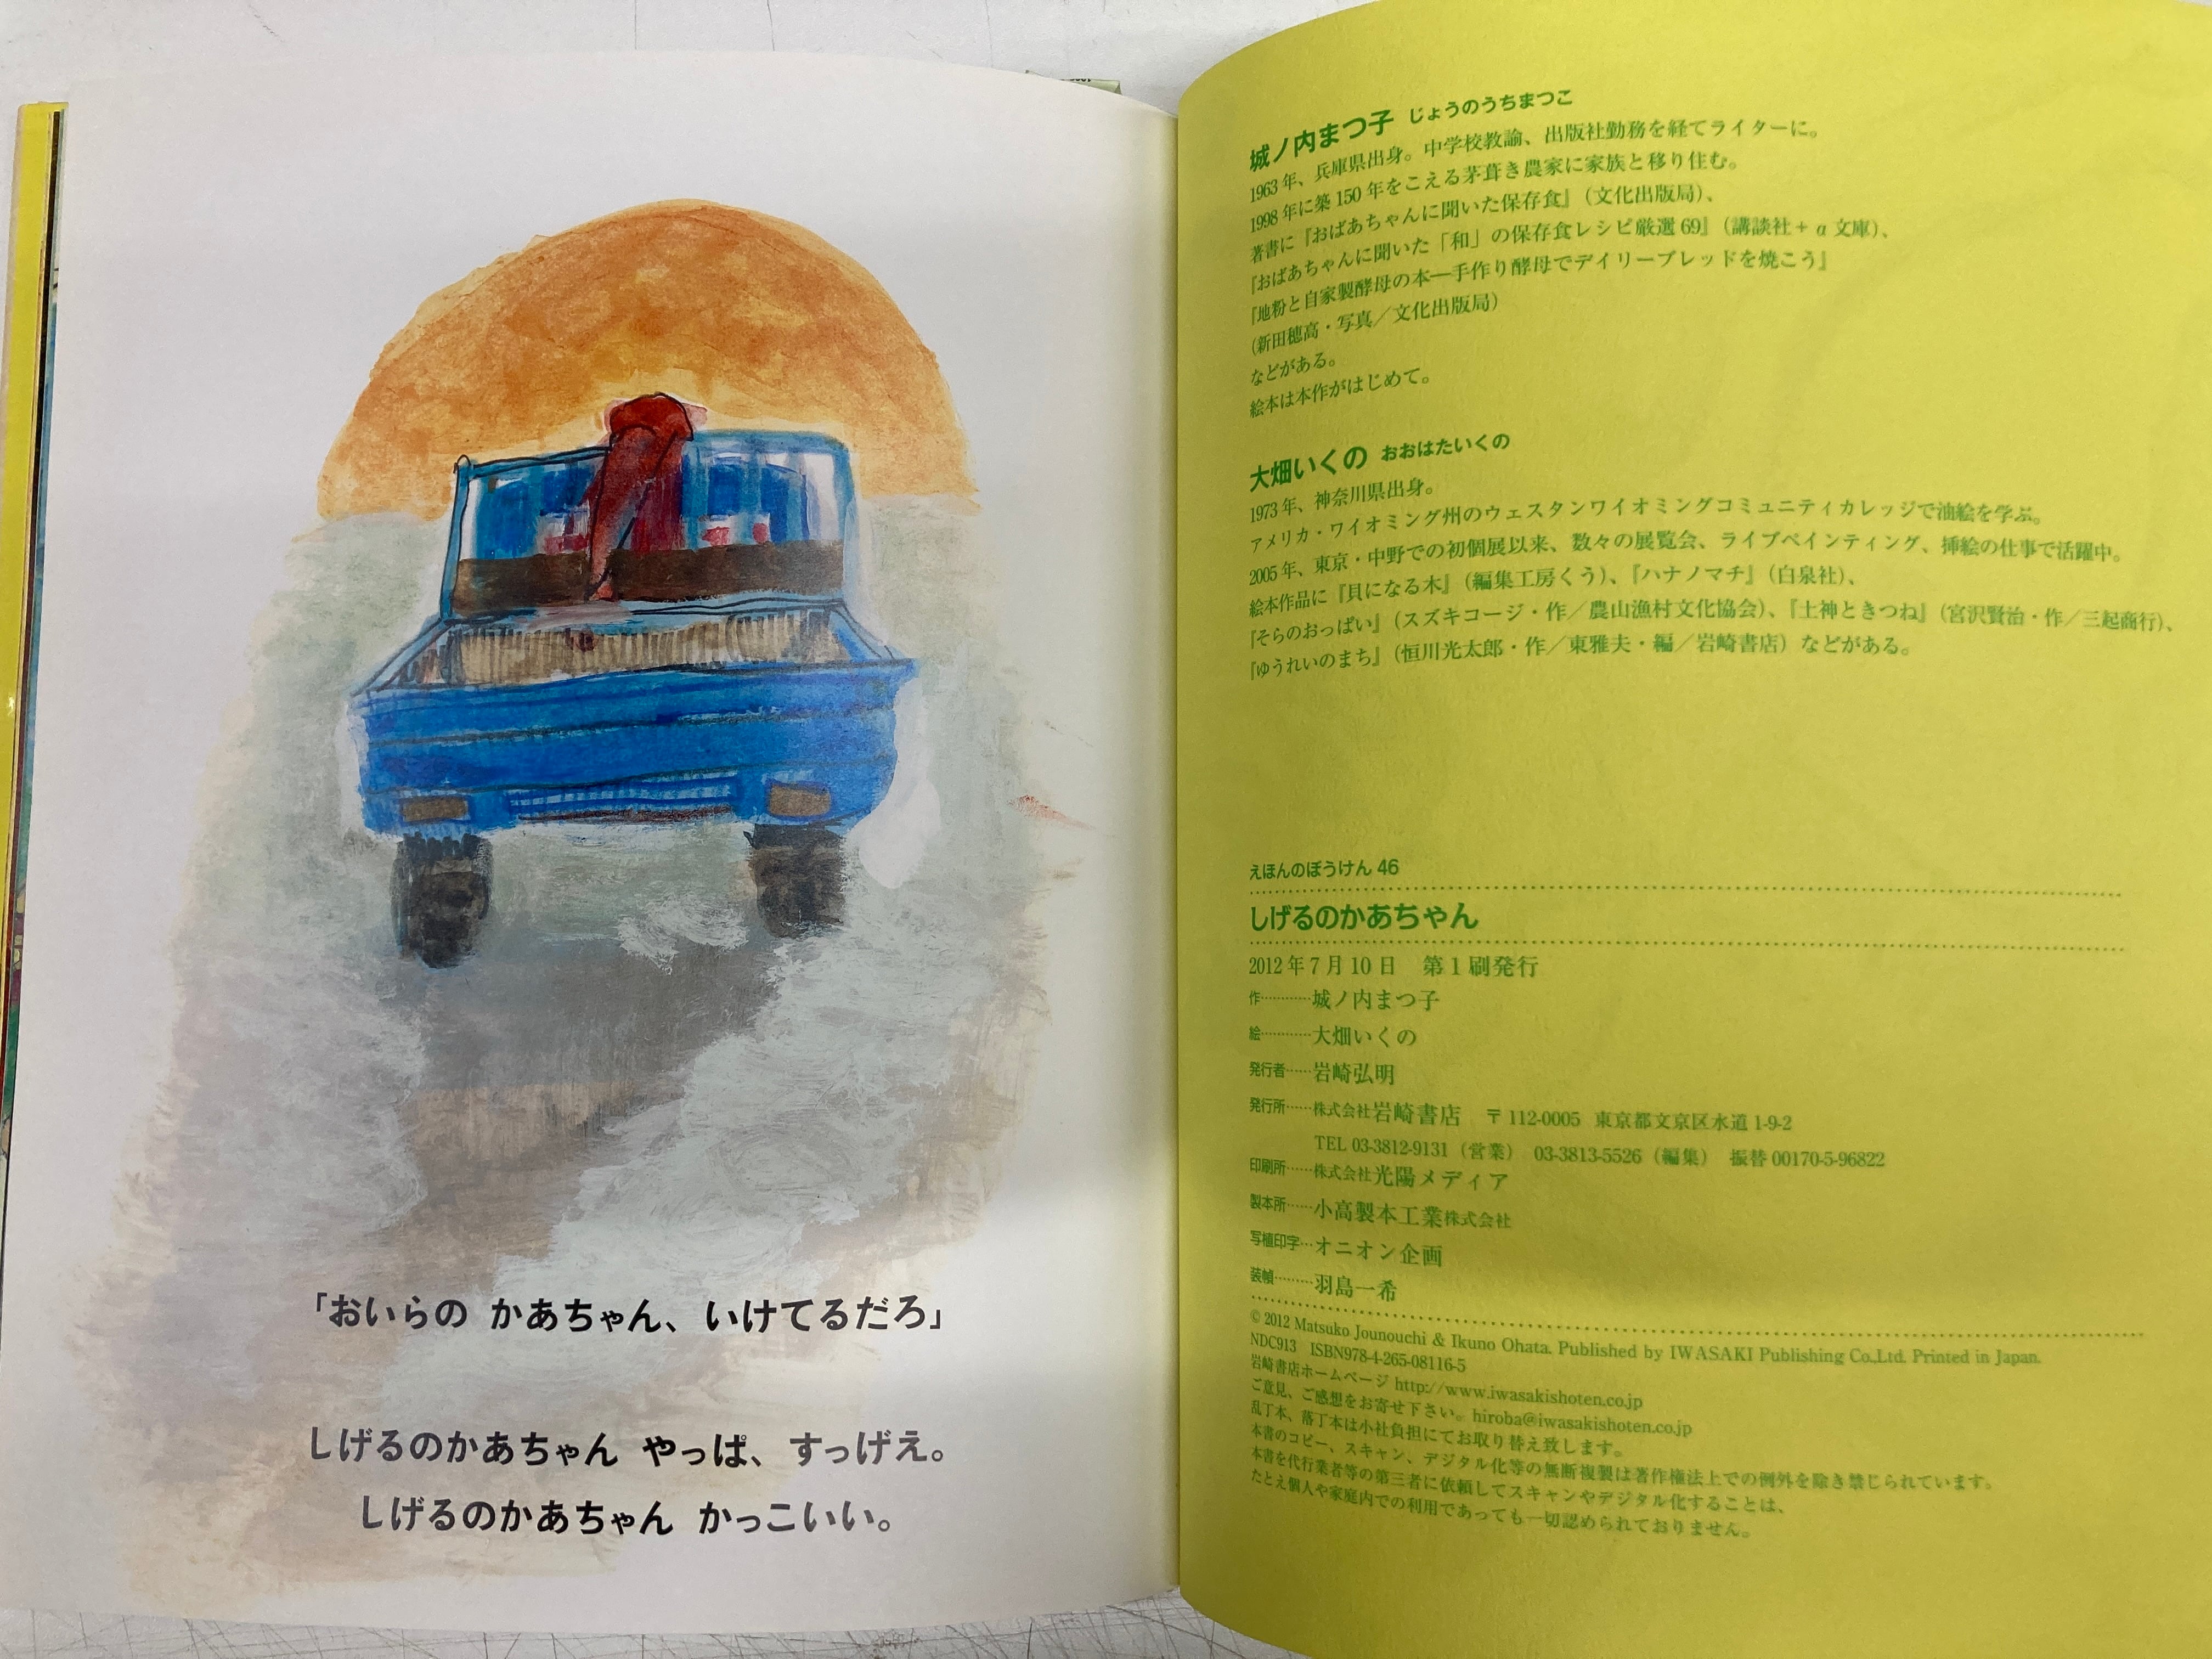 「おいらの かあちゃん、いけてるだろ」
しげるのかあちゃん やっぱ、すっげえ。
しげるのかあちゃん かっこいい。
城ノ内まつ子 じょうのうちまつこ
1963年、兵庫県出身。中学校教諭、出版社勤務を経てライターに。
1998年に築150年をこえる茅葺き農家に家族と移り住む。
著書に『おばあちゃんに聞いた保存食』(文化出版局)、
『おばあちゃんに聞いた「和」の保存食レシピ厳選69』(講談社+α文庫)、
『地粉と自家製酵母の本―手作り酵母でデイリーブレッドを焼こう』
(新田穂高・写真/文化出版局)
などがある。
絵本は本作がはじめて。
大畑いくの おおはたいくの
1973年、神奈川県出身。
アメリカ・ワイオミング州のウェスタンワイオミングコミュニティカレッジで油絵を学ぶ。
2005年、東京・中野での初個展以来、数々の展覧会、ライブペインティング、挿絵の仕事で活躍中。
絵本作品に『貝になる木』(編集工房くう)、『ハナノマチ』(白泉社)、
『そらのおっぱい』(スズキコージ・作/農山漁村文化協会)、『土神ときつね』(宮沢賢治・作/三起商行)、
『ゆうれいのまち』(恒川光太郎・作/東雅夫・編/岩崎書店)などがある。
えほんのぼうけん 46
しげるのかあちゃん
2012年7月10日 第1刷発行
作…………城ノ内まつ子
絵…………大畑いくの
発行者……岩崎弘明
発行所……株式会社岩崎書店 〒112-0005 東京都文京区水道1-9-2
TEL 03-3812-9131(営業) 03-3813-5526(編集) 振替00170-5-96822
印刷所……株式会社光陽メディア
製本所……小高製本工業株式会社
写植印字…オニオン企画
装幀………羽島一希
© 2012 Matsuko Jounouchi & Ikuno Ohata. Published by IWASAKI Publishing Co.,Ltd. Printed in Japan.
NDC913 ISBN978-4-265-08116-5
岩崎書店ホームページ http://www.iwasakishoten.co.jp
ご意見、ご感想をお寄せ下さい。hiroba@iwasakishoten.co.jp
乱丁本、落丁本は小社負担にてお取り替え致します。
本書のコピー、スキャン、デジタル化等の無断複製は著作権法上での例外を除き禁じられています。
本書を代行業者等の第三者に依頼してスキャンやデジタル化することは、
たとえ個人や家庭内での利用であっても一切認められておりません。